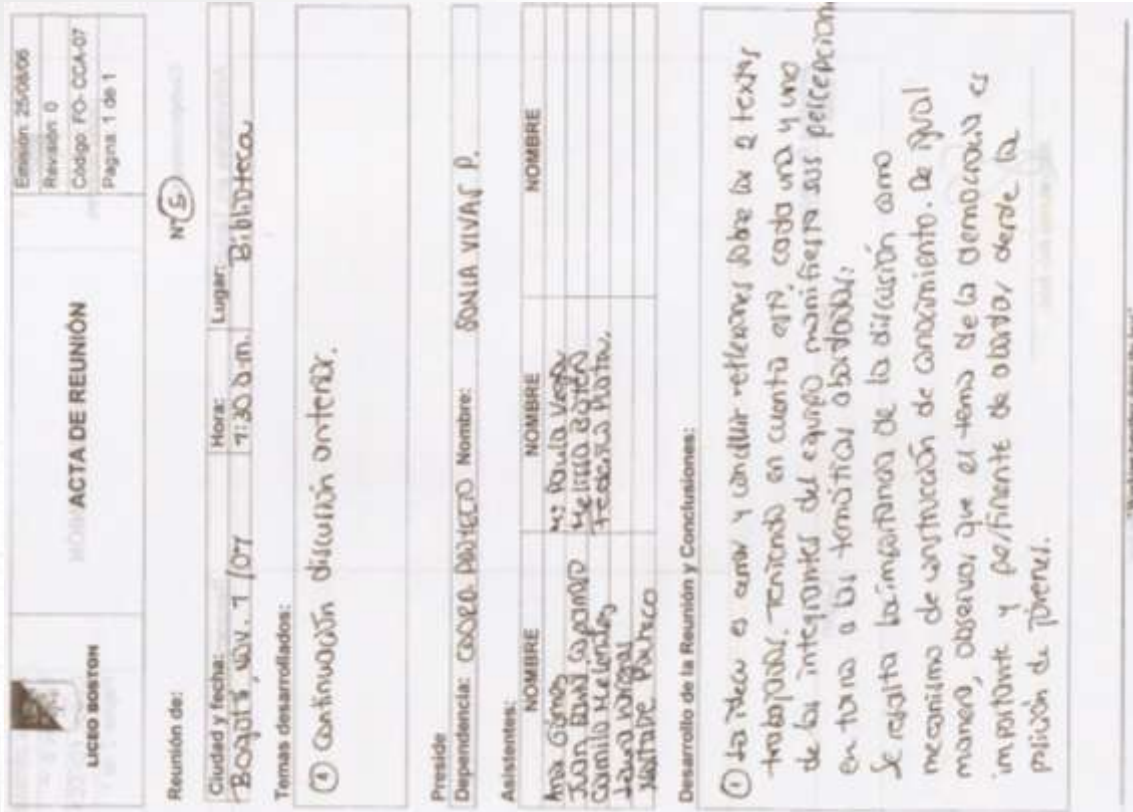 LICEO BOSTON
ACTA DE REUNIÓN
Emisión: 25/08/06
Revisión: 0
Código: FO-CCA-07
Pagina: 1 de 1
Reunión de:
N° 5
Ciudad y fecha: Hora: Lugar:
Bogotá, Nov. 7 /07 7:30 a.m. Biblioteca
Temas desarrollados:
① Continuación discusión anterior.
Preside
Dependencia: COORD. PROYECTO Nombre: SONIA VIVAS P.
Asistentes:
NOMBRE NOMBRE NOMBRE
Ana Gómez Mª Paula Vega
Juan Pablo Melissa
Camilo Melendez Federico Plata.
Laura
Natalie Pacheco
Desarrollo de la Reunión y Conclusiones:
① La idea es cerrar y concluir reflexiones sobre los 2 textos
trabajados. Teniendo en cuenta esto, cada una y uno
de los integrantes del equipo manifiesta sus percepciones
en torno a las temáticas abordadas:
Se resalta la importancia de la discusión como
mecanismo de construcción de conocimiento. De igual
manera, observar que el tema de la democracia es
importante y pertinente de abordar desde la
posición de jóvenes.